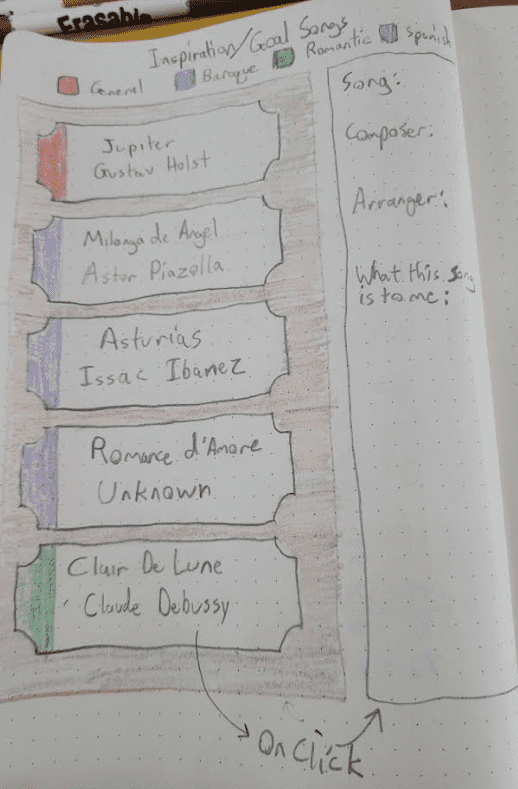 Erasable
Inspiration/Goal Songs
General
Baroque
Romantic
Spanish
Jupiter
Gustav Holst
Milonga de Angel
Astor Piazolla
Asturias
Issac Ibanez
Romance d'Amore
Unknown
Clair De Lune
Claude Debussy
On Click
Song:
Composer:
Arranger:
What this song
is to me: